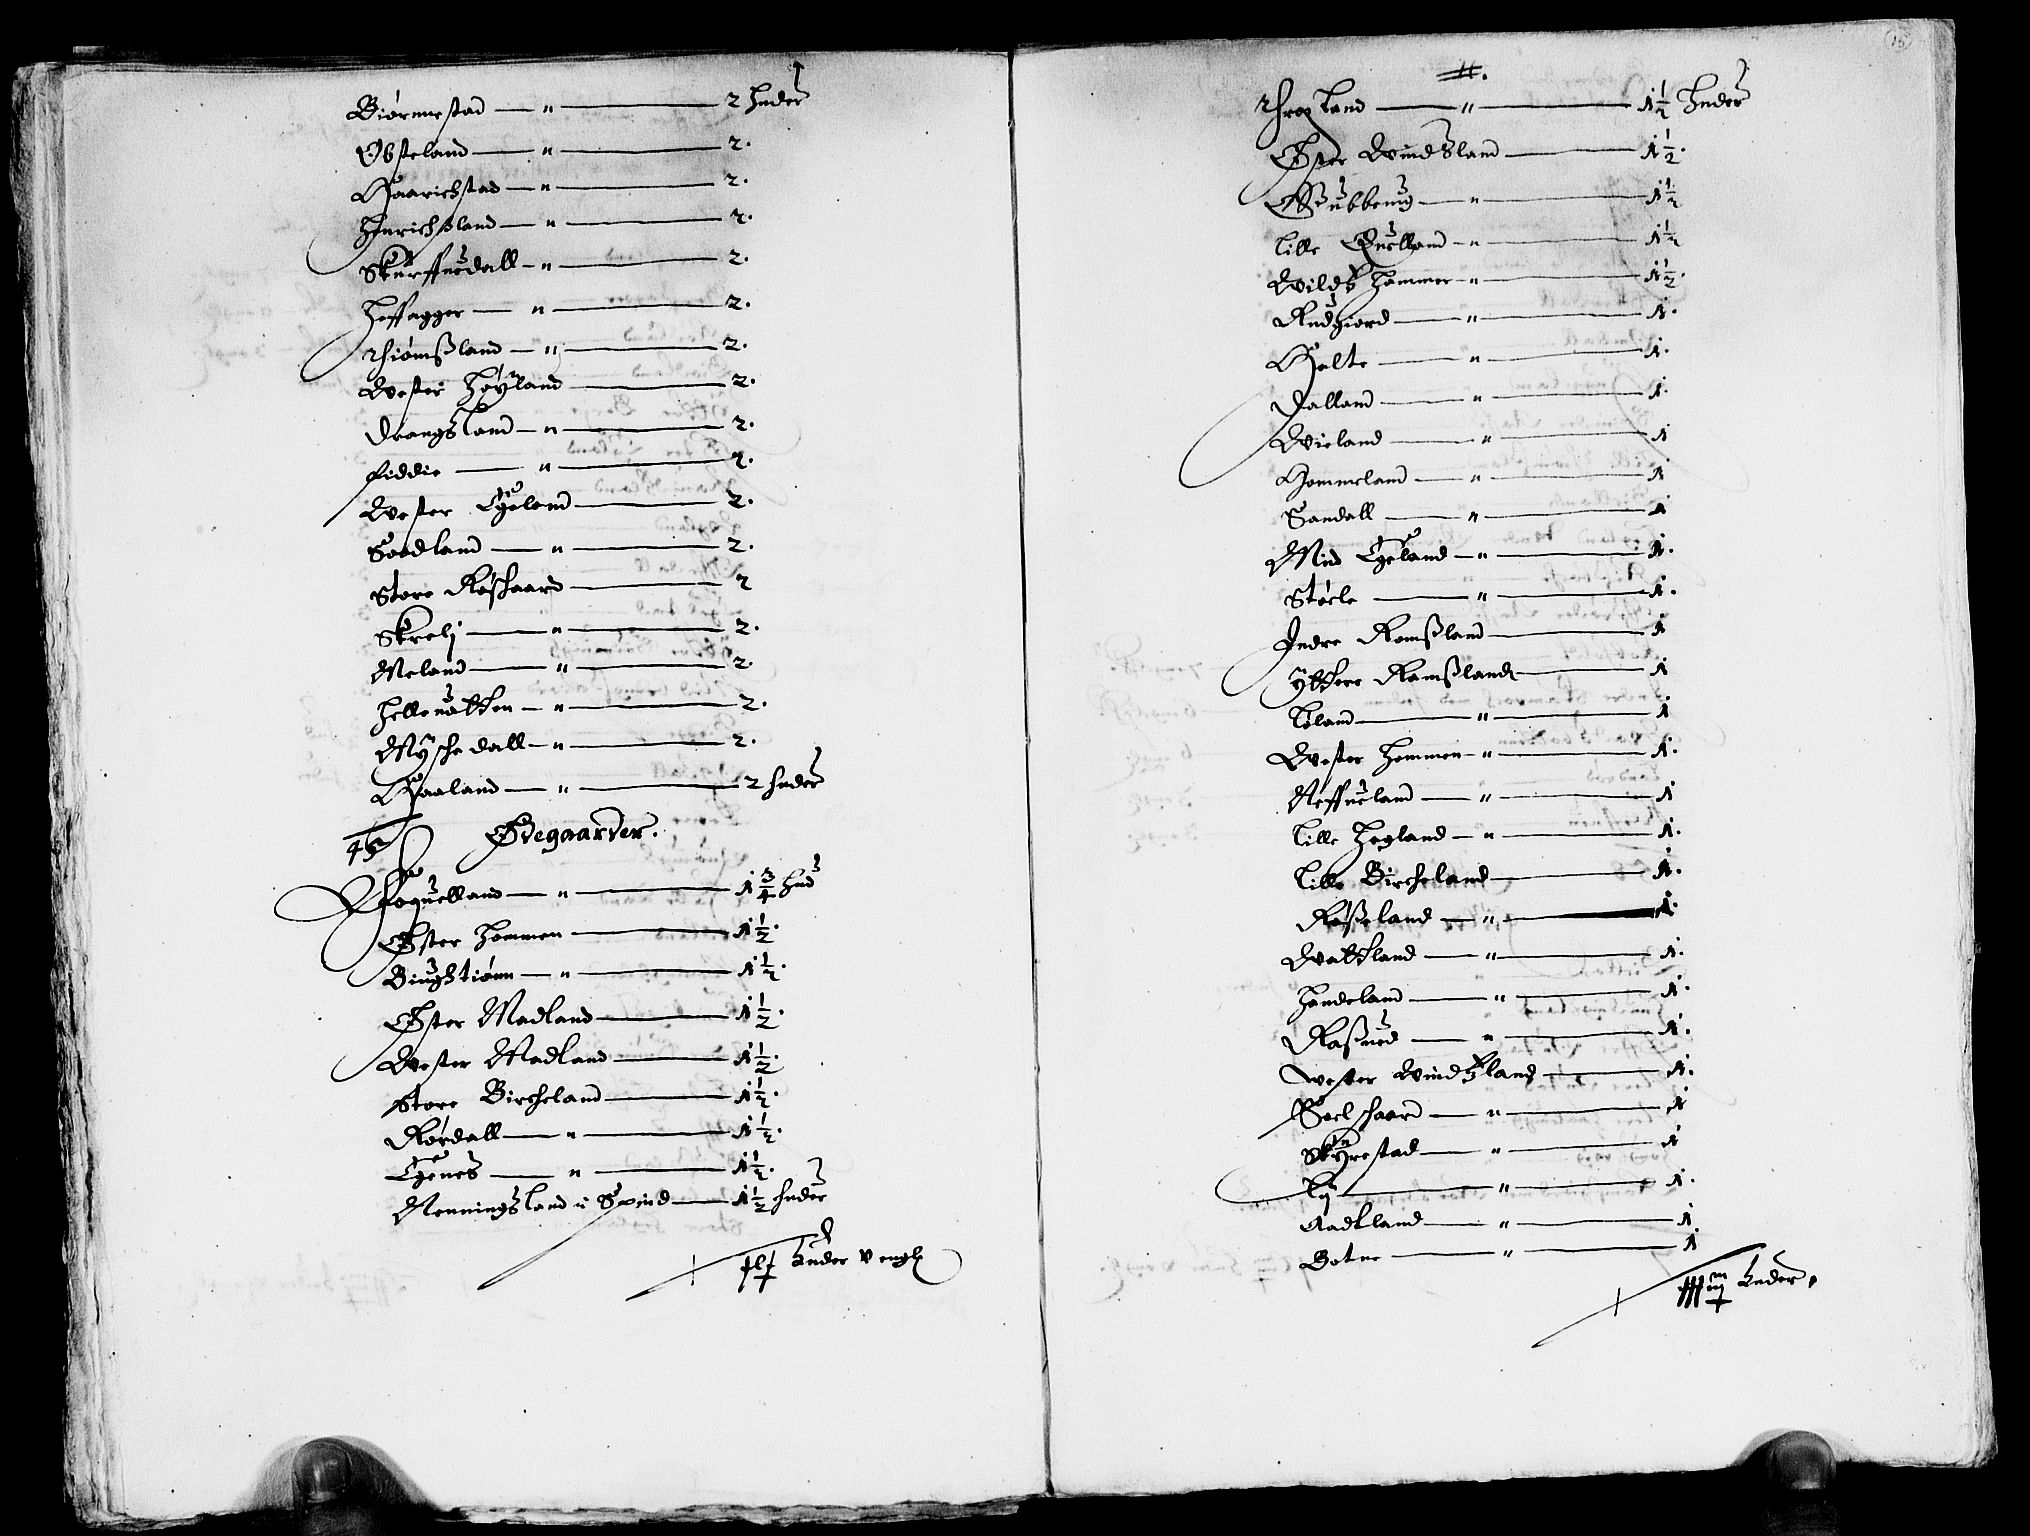 Biørnnestad — " — 2 Huder
Obsteland — " — 2.
Haarichstad — " — 2.
Hinrichßland — " — 2.
Skurffuedall — " — 2.
Heffagger — " — 2.
Thiømßland — " — 2.
Wester Høÿland — 2.
Drangsland — " — 2.
Fiddie — " — 2.
Wester Egeland — 2.
Sordland — " — 2.
Store Røschaard — 2
Skrelj — " — 2.
Meland — " — 2.
Helleuatten — " — 2.
Mÿsche dall — " — 2.
Haaland — " — 2 huder
45 Ødegaarder.
Hoguelland — " — 1 3/4 Hud
Øster Hommen — 1 1/2.
Biughtiønn — " — 1 1/2.
Øster Madland — 1 1/2.
Wester Madland — 1 1/2.
Store Bircheland — 1 1/2.
Rørdall — " — 1 1/2.
Egenes — " — 1 1/2.
Nenningsland i Spind — 1 1/2 huder
huder v engl
15
Throgland — " — 1 1/2 Huder
Øster Windsland — 1 1/2.
Gubbeuig — " — 1 1/2
Lille Quelland — " — 1 1/2
Wilds Hammer — " — 1 1/2.
Rudgiord — " — 1.
Holte — " — 1.
Dalland — " — 1.
Wieland — " — 1
Hommeland — " — 1
Sandall — " — 1
Mid Egeland — " — 1.
Støele — " — 1.
Indre Romßland — 1
Ÿttere Ramßland — 1
Loland — " — 1
Wester Hommen — " — 1.
Neffueland — " — 1
Lille Hegland — " — 1.
Lille Bircheland — 1.
Røßeland — " — 1.
Wattland — " — 1.
Handeland — " — 1.
Raßued — " — 1.
Wester Windsland — 1.
Soelschaard — " — 1
Skÿrestad — " — 1
Lÿ — " — 1.
Aadtland — " — 1
Botne — " — 1
huder.